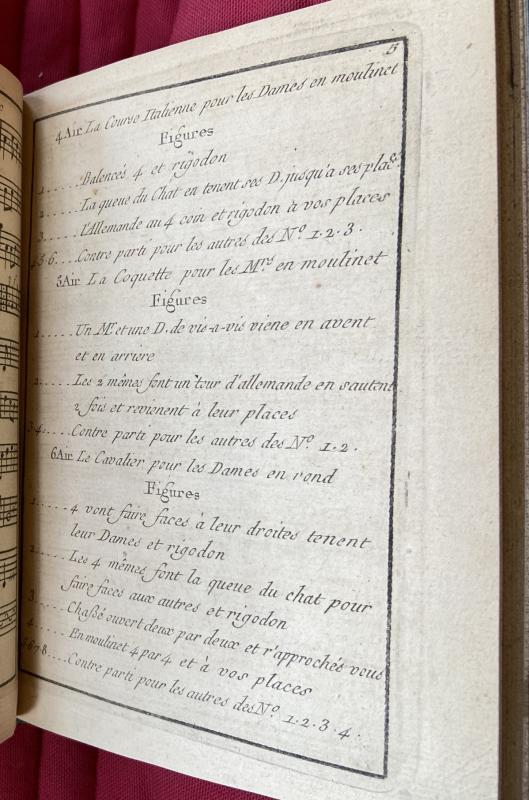 5
4 Air La Course Italienne pour les Dames en moulinet
Figures
1.....Balencés 4 et rigodon
2.....La queue du Chat en tenent ses D. jusqu'a ses plac.
3.....L'Allemande au 4 coin et rigodon à vos places
4.5.6....Contre parti pour les autres des No. 1.2.3.
5 Air La Coquette pour les Mrs en moulinet
Figures
1.....Un Mr et une D. de vis-a-vis viene en avent
et en arriere
2.....Les 2 mêmes font un tour d'allemande en sautent
2 fois et revienent à leur places
3.4.....Contre parti pour les autres des No. 1.2.
6 Air Le Cavalier pour les Dames en rond
Figures
1.....4 vont faire faces à leur droites tenent
leur Dames et rigodon
2.....Les 4 mêmes font la queue du chat pour
faire faces aux autres et rigodon
3.....Chassé ouvert deux par deux et r'approchés vous
4.....En moulinet 4 par 4 et à vos places
5.6.7.8....Contre parti pour les autres des No. 1.2.3.4.